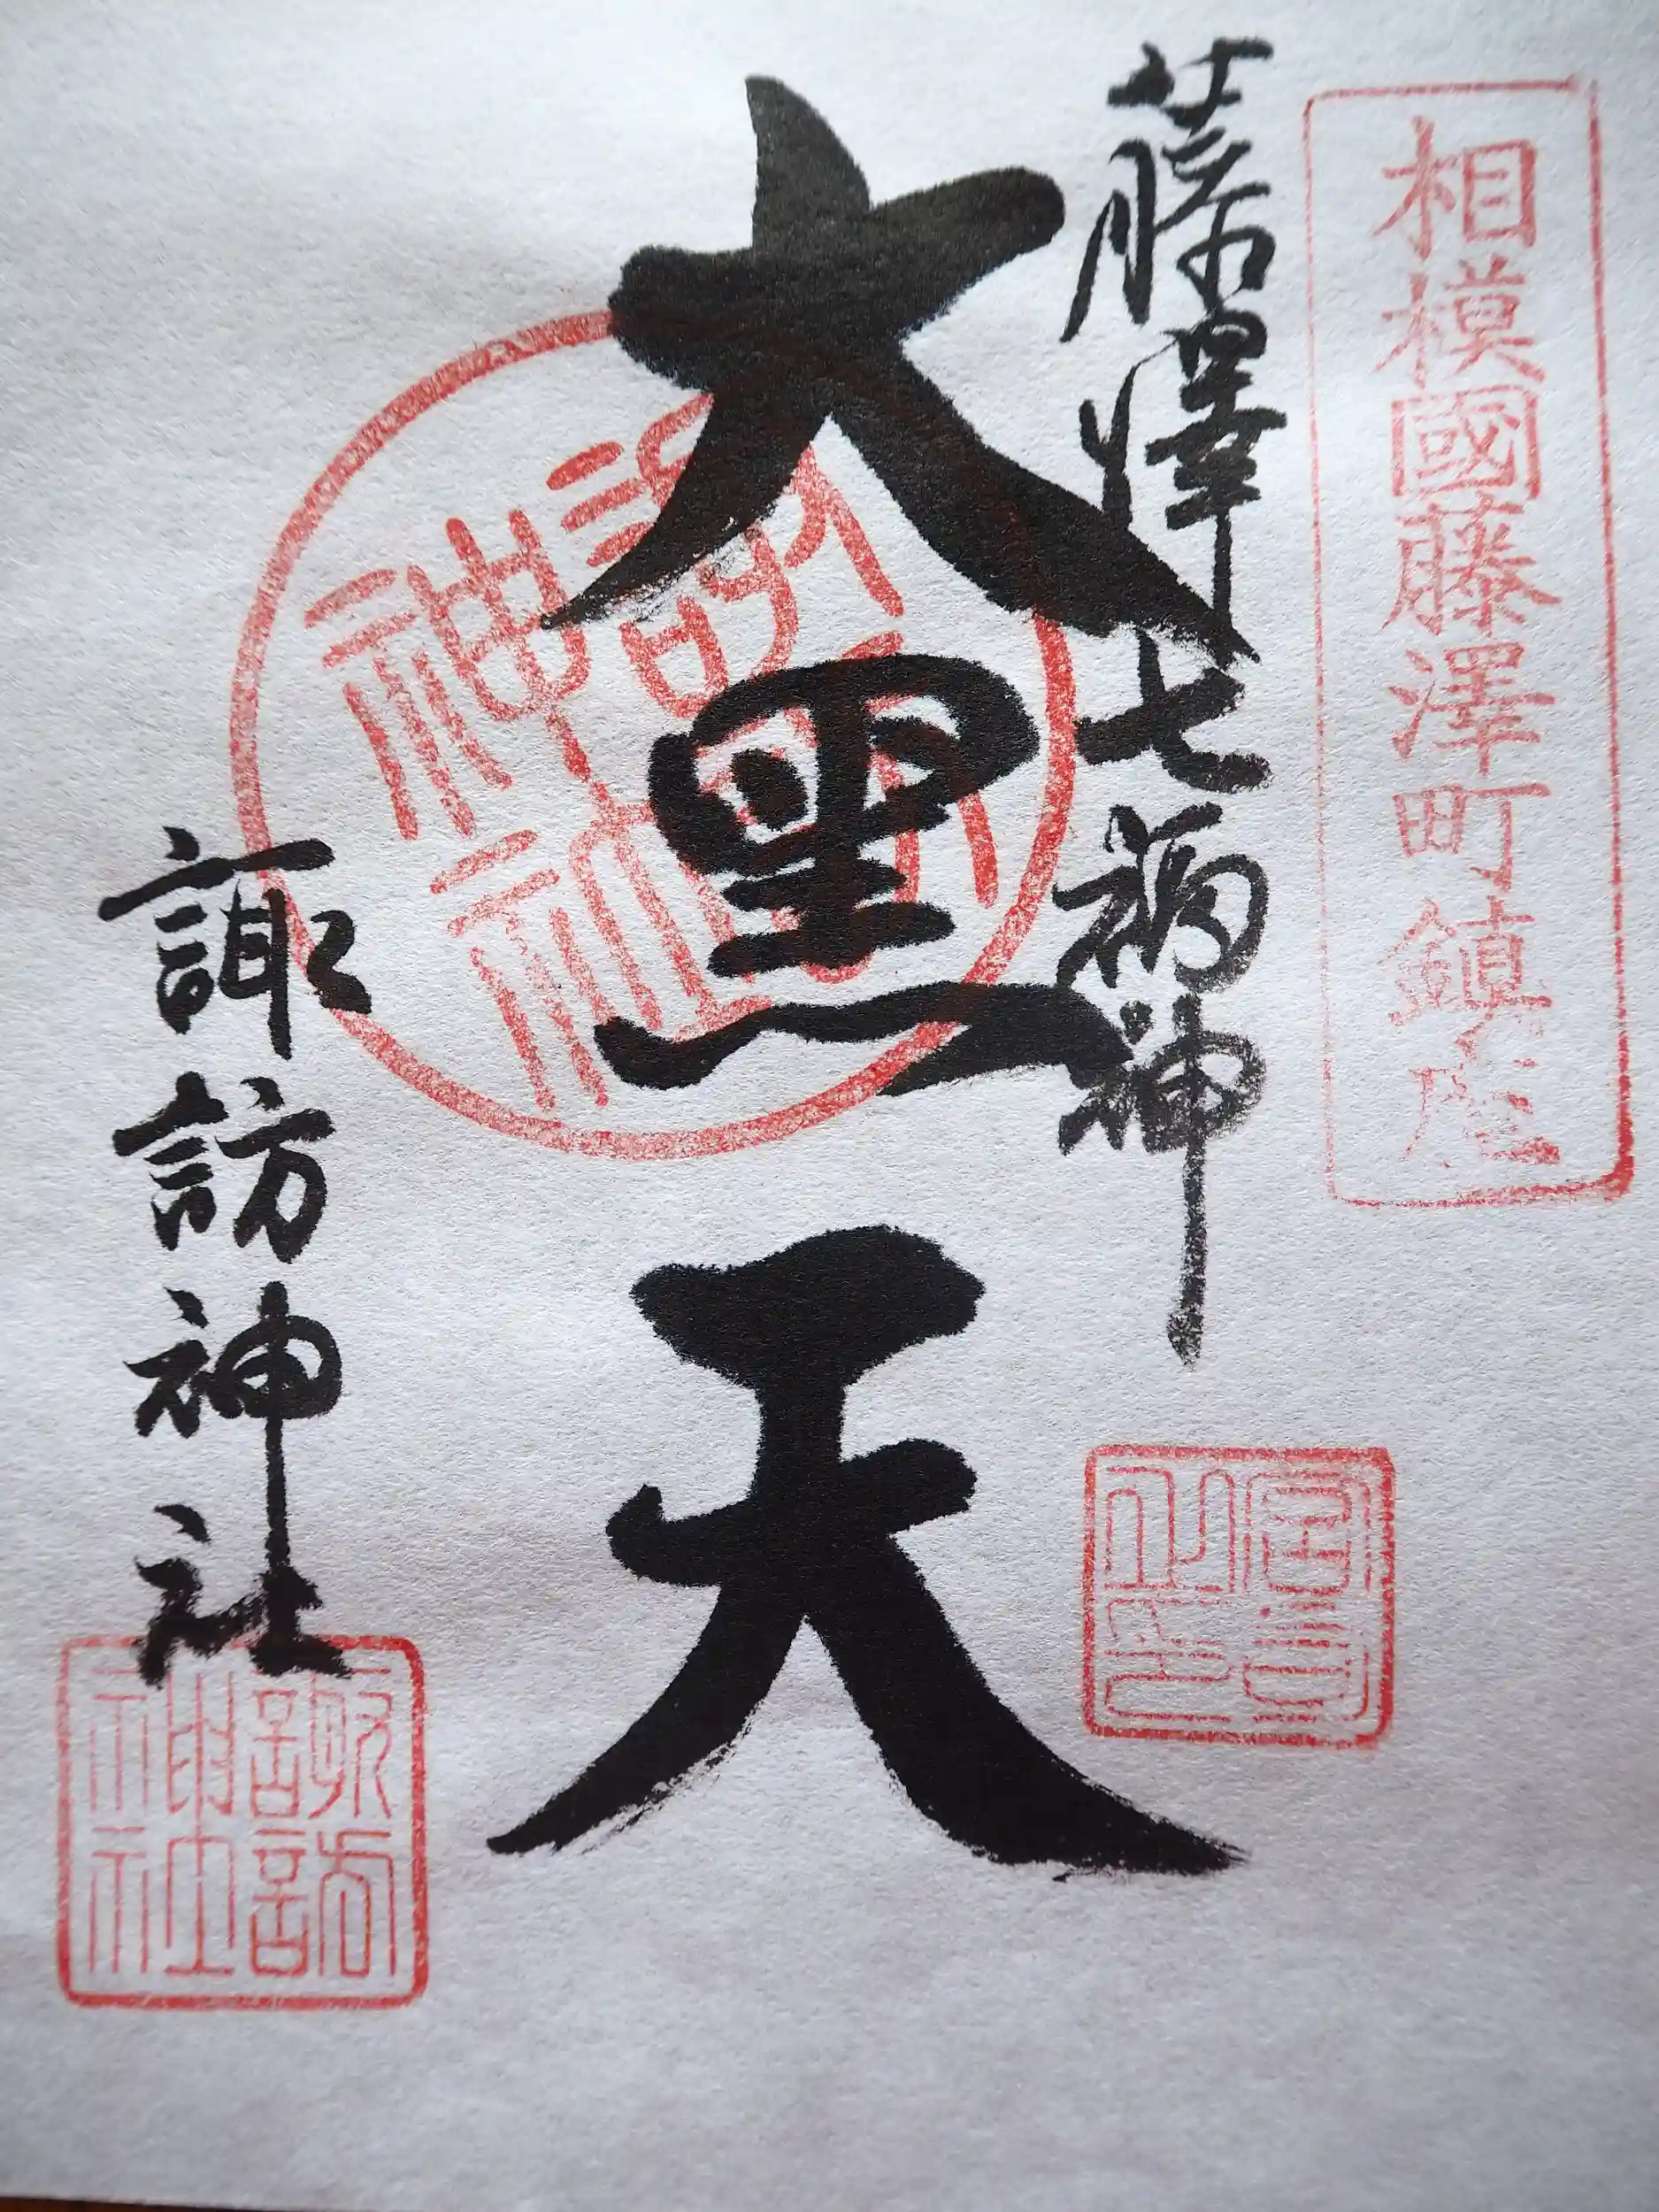 相模國藤澤町鎮座
藤澤七福神
大黒天
諏訪神社
諏訪神社
諏訪神社